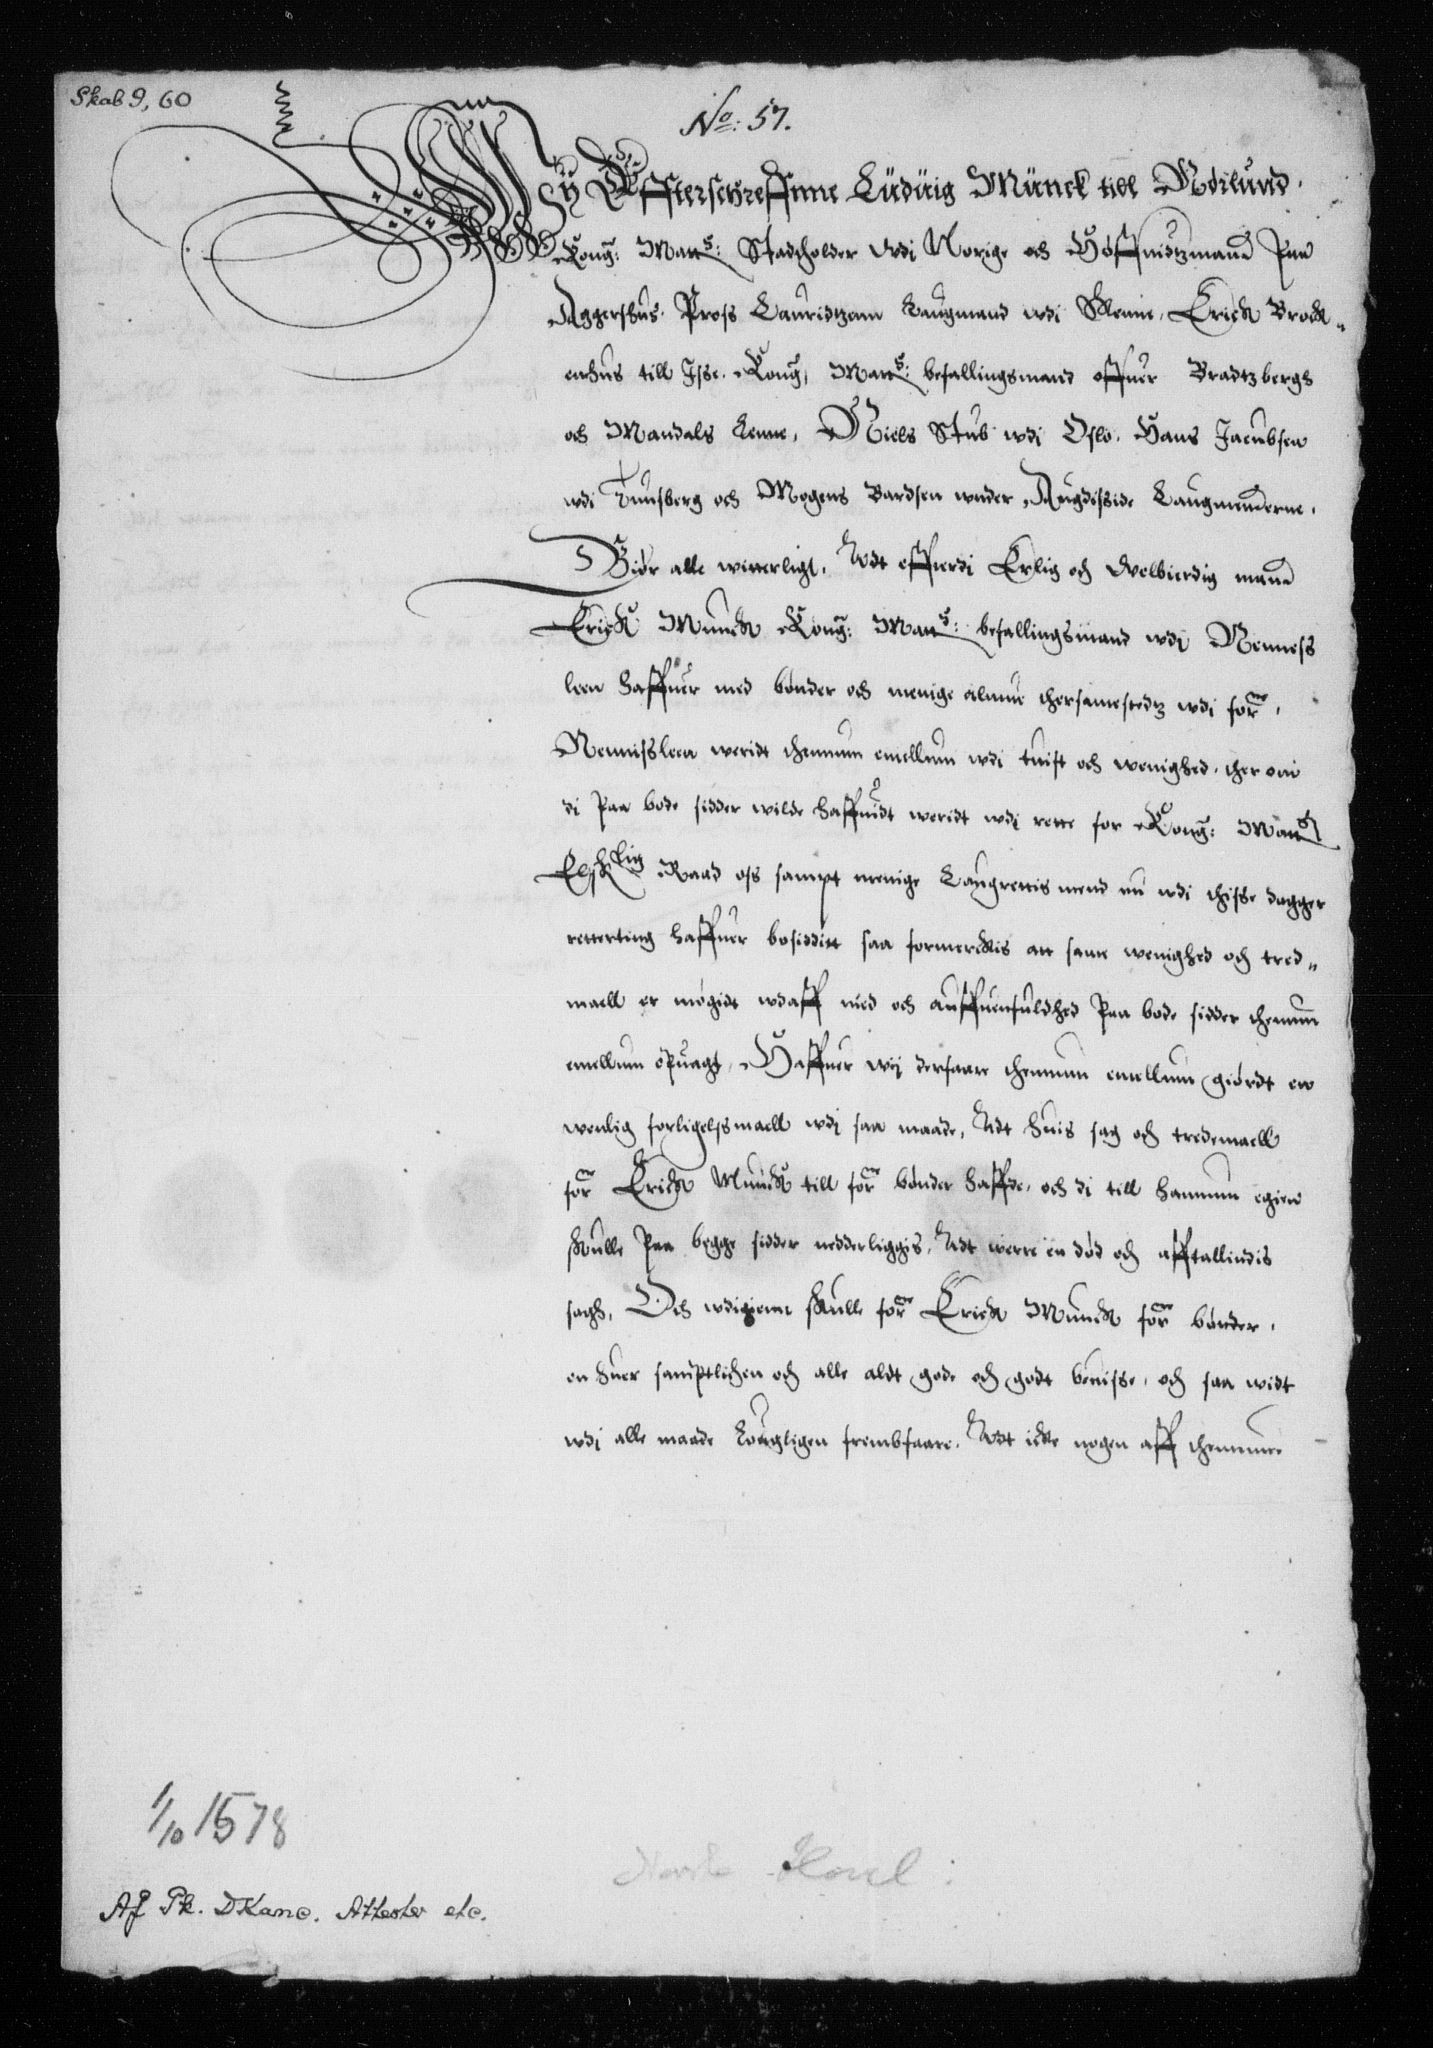 Skab 9, 60
No: 57.
Wÿ Effterschreffnne Lüduig Münck till Nörlund.
Kong: Matts: Stadtholder wdi Norige och Höffuidtzmand Paa
Aggershus. Pross Lauridtzenn Laugmand wdi Skienn, Erick Brock-
enhus till Jsse. Kong: Matts: befallingsmand offuer Bradtzbergh
och Mandals Lenne, Niels Stub wdi Oslo. Hans Jacubsen
wdi Tunsberg och Mogens Bardsen wnder Augdisside Laugmenderne.
Giör alle witterligt, Adt efftterdi Erlig och Welbierdig mand
Erick Munck Kong: Matts: befallingsmand wdj Nenness
leen haffuer med bönder och menige almue thersamestedtz wdi forne
Nennissleen weridt thennum emellum wdi tuist och wenighed, ther om
di Paa bode sidder wilde haffuidt weridt wdi rette for Kong: Matts
Elskelig Raad oss sampt menige Laugrettis mend nu wdi thisse dagger
retterting haffuer besidditt saa formerckis att same wenighed och tred-
maell er mögidt wdaff nied och auffuensuldhed Paa bode sidder thennum
emellum opuagt, Haffuer wij derfaare thennum emellum giördt en
wenlig forligelssmaell wdj saa maade, Adt huis sag och tredemaell
forne Erick Munck till forne bönder haffde, och di till hannum igien
skulle Paa begge sidder nedderliggis, Adt were en död och afftallindis
sagh, Och wdigienn skulle forne Erick Munck forne bönder,
en huer samptlichen och alle aldt gode och godt beuisse, och saa widt
wdj alle maade Lougligen frembfaare. Adt icke nogen aff thennum
1/10 1578
Af Pk. DKanc. Attester etc.
Norske